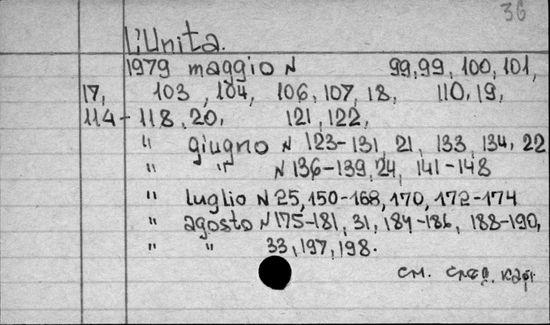 36
L'Unita.
1979 maggio N 99,99, 100, 101,
17, 103, 104, 106, 107, 18, 110, 19,
114-118, 20, 121, 122,
" giugno N 123-131, 21, 133, 134, 22
" " N 136-139, 24, 141-148
" luglio N 25, 150-168, 170, 172-174
" agosto N 175-181, 31, 184-186, 188-190,
" " 33, 197, 198.
см. след. карт